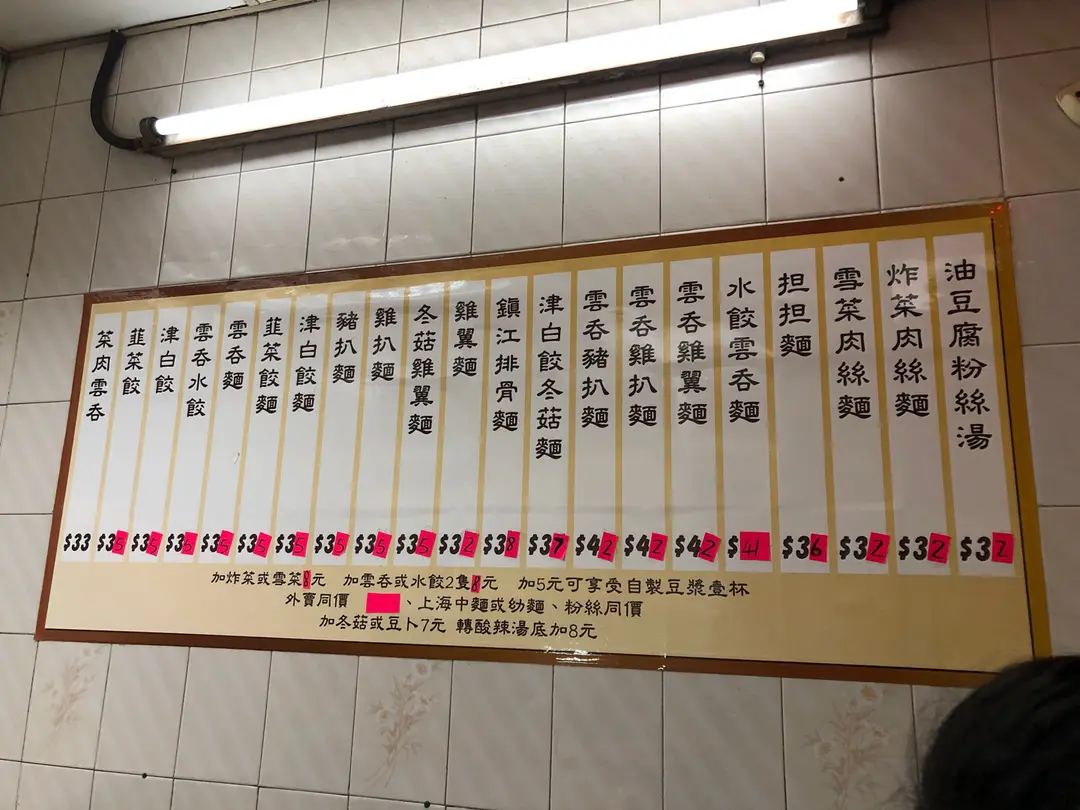 油豆腐粉絲湯 $32
炸菜肉絲麵 $32
雪菜肉絲麵 $32
担担麵 $36
水餃雲吞麵 $41
雲吞雞翼麵 $42
雲吞雞扒麵 $42
雲吞豬扒麵 $42
津白餃冬菇麵 $37
鎮江排骨麵 $38
雞翼麵 $32
冬菇雞翼麵 $35
雞扒麵 $35
豬扒麵 $35
津白餃麵 $35
韮菜餃麵 $35
雲吞麵 $35
雲吞水餃 $35
津白餃 $35
韮菜餃 $35
菜肉雲吞 $33
加炸菜或雪菜8元 加雲吞或水餃2隻8元 加5元可享受自製豆漿壹杯
外賣同價 、上海中麵或幼麵、粉絲同價
加冬菇或豆卜7元 轉酸辣湯底加8元